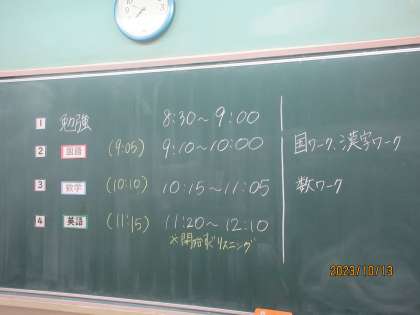 1 勉強 8:30～9:00
2 国語 (9:05) 9:10～10:00 国ワーク、漢字ワーク
3 数学 (10:10) 10:15～11:05 数ワーク
4 英語 (11:15) 11:20～12:10
※開始すぐリスニング
2023/10/13